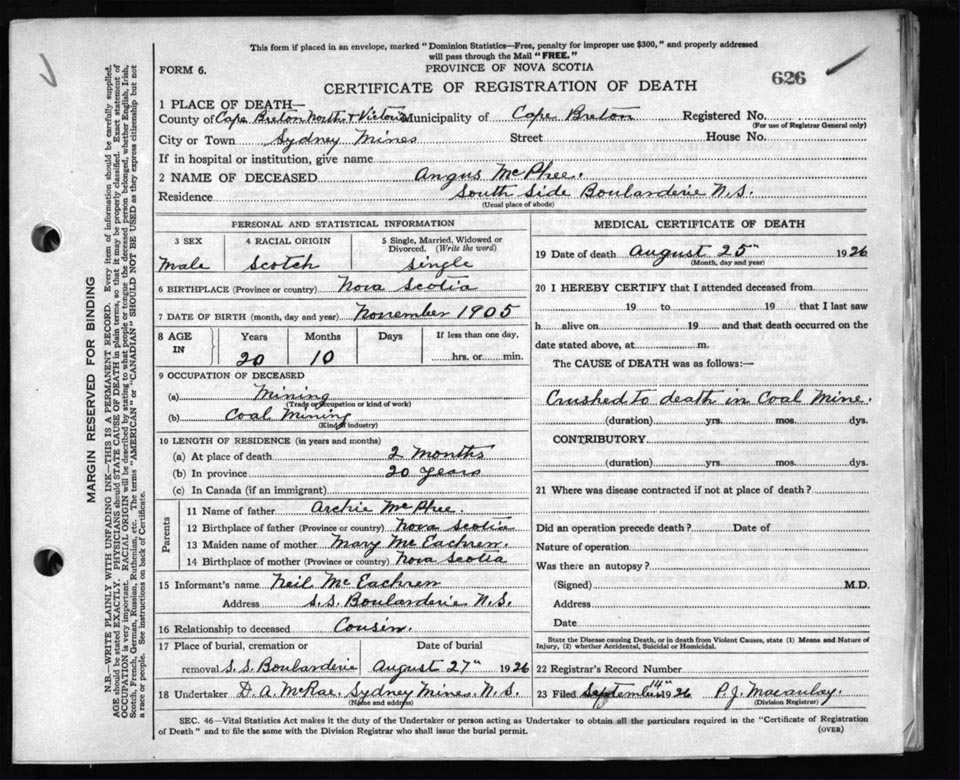 This form if placed in an envelope, marked "Dominion Statistics—Free, penalty for improper use $300," and properly addressed
will pass through the Mail "FREE."
FORM 6.
PROVINCE OF NOVA SCOTIA
626
CERTIFICATE OF REGISTRATION OF DEATH
1 PLACE OF DEATH—
County of Cape Breton North & Victoria Municipality of Cape Breton Registered No.
(For use of Registrar General only)
City or Town Sydney Mines Street House No.
If in hospital or institution, give name
2 NAME OF DECEASED Angus McPhee.
Residence South Side Boularderie N.S.
(Usual place of abode)
PERSONAL AND STATISTICAL INFORMATION
3 SEX 4 RACIAL ORIGIN 5 Single, Married, Widowed or Divorced. (Write the word)
Male Scotch Single
6 BIRTHPLACE (Province or country) Nova Scotia
7 DATE OF BIRTH (month, day and year) November 1905
8 AGE IN Years Months Days If less than one day,
20 10 hrs. or min.
9 OCCUPATION OF DECEASED
(a) Mining
(Trade or occupation or kind of work)
(b) Coal Mining
(Kind of industry)
10 LENGTH OF RESIDENCE (in years and months)
(a) At place of death 2 months
(b) In province 20 years
(c) In Canada (if an immigrant)
Parents
11 Name of father Archie McPhee.
12 Birthplace of father (Province or country) Nova Scotia
13 Maiden name of mother Mary McEachren.
14 Birthplace of mother (Province or country) Nova Scotia
15 Informant's name Neil McEachren
Address S.S. Boularderie N.S.
16 Relationship to deceased Cousin.
17 Place of burial, cremation or Date of burial
removal S.S. Boularderie August 27th 1926
18 Undertaker D. A. McRae, Sydney Mines N.S.
(Name and address)
MEDICAL CERTIFICATE OF DEATH
19 Date of death August 25th 1926
(Month, day and year)
20 I HEREBY CERTIFY that I attended deceased from
19 to 19 that I last saw
h alive on 19 and that death occurred on the
date stated above, at m.
The CAUSE of DEATH was as follows:—
Crushed to death in Coal Mine.
(duration) yrs. mos. dys.
CONTRIBUTORY
(duration) yrs. mos. dys.
21 Where was disease contracted if not at place of death?
Did an operation precede death? Date of
Nature of operation
Was there an autopsy?
(Signed) M.D.
Address
Date
State the Disease causing Death, or in death from Violent Causes, state (1) Means and Nature of
Injury, (2) whether Accidental, Suicidal or Homicidal.
22 Registrar's Record Number
23 Filed September 14th 1926 P.J. Macaulay.
(Division Registrar)
SEC. 46—Vital Statistics Act makes it the duty of the Undertaker or person acting as Undertaker to obtain all the particulars required in the "Certificate of Registration
of Death" and to file the same with the Division Registrar who shall issue the burial permit.
(OVER)
MARGIN RESERVED FOR BINDING
N.B.—WRITE PLAINLY WITH UNFADING INK—THIS IS A PERMANENT RECORD. Every item of information should be carefully supplied.
AGE should be stated EXACTLY. PHYSICIANS should STATE CAUSE OF DEATH in plain terms, so that it may be properly classified. Exact statement of
OCCUPATION is very important. RACIAL ORIGIN will be described by stating to what people or tongue the deceased person belonged, whether English, Irish,
Scotch, French, German, Russian, Ruthenian, etc. The terms "AMERICAN" or "CANADIAN" SHOULD NOT BE USED as they express citizenship but not
a race or people. See instructions on back of Certificate.